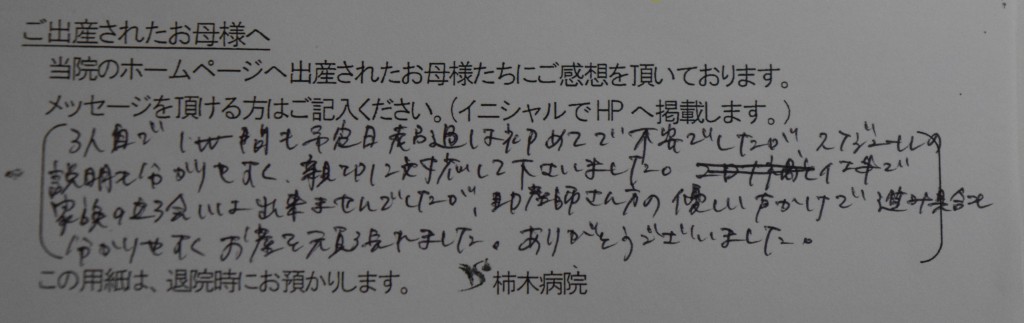 ご出産されたお母様へ
当院のホームページへ出産されたお母様たちにご感想を頂いております。
メッセージを頂ける方はご記入ください。(イニシャルでHPへ掲載します。)
3人目で1週間も予定日超過は初めてで不安でしたが、スケジュールの
説明も分かりやすく、親切に対応して下さいました。 で
家族の立ち会いは出来ませんでしたが、助産師さん方の優しい声かけで進み具合も
分かりやすくお産を元気られました。ありがとうございました。
この用紙は、退院時にお預かりします。 柿木病院